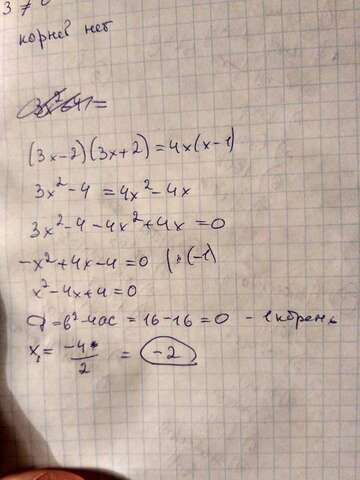 3 ≠
корней нет
(3x-2)(3x+2)=4x(x-1)
3x²-4 = 4x²-4x
3x²-4-4x²+4x = 0
-x²+4x-4=0 |·(-1)
x²-4x+4=0
D=b²-4ac = 16-16=0 - 1 корень
x₁= -4/2 = -2